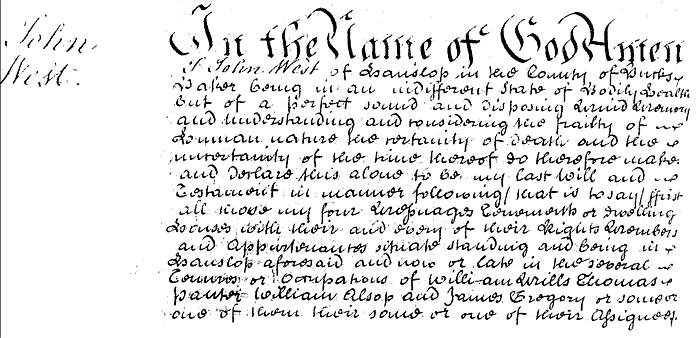 John
West.
In the Name of God Amen
I John West of Hanslop in the County of Bucks
Baker being in an indifferent State of Bodily Health
but of a perfect sound and disposing Mind Memory
and understanding and considering the frailty of
Human nature the certainty of death and the
uncertainty of the time thereof do therefore make
and declare this alone to be my last Will and
Testament in manner following / that is to say / ffirst
all those my four Messuages Tenements or dwelling
Houses with their and every of their Rights Members
and Appurtenances situate standing and being in
Hanslop aforesaid and now or late in the several
Tenures or Occupations of William Mills Thomas
William Alsop and James Gregory or some or
one of them their some or one of their Assignees